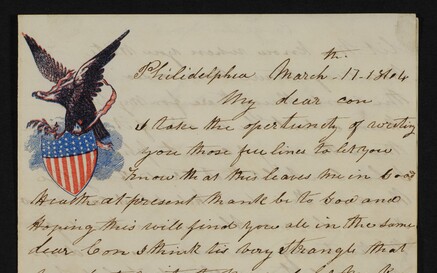 Philidelphia March th. 17 - 1864
My dear con
I take the opertunity of writing
you those few lines to let you
know that this leaves me in Good
Health at present thank be to God and
Hoping this will find you all in the same
dear Con I think tis very Strangle that